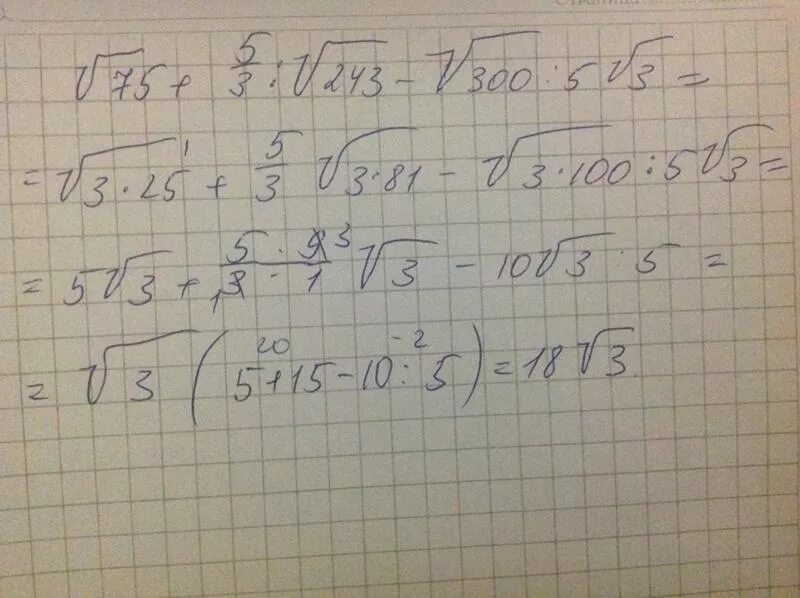 √75 + 5/3 : √243 - √300 : 5√3 =
= √3·25 + 5/3 √3·81 - √3·100 : 5√3 =
= 5√3 + 5·9 3/1 3·1 √3 - 10√3 : 5 =
= √3 (5+15-10:5) = 18√3
20 -2